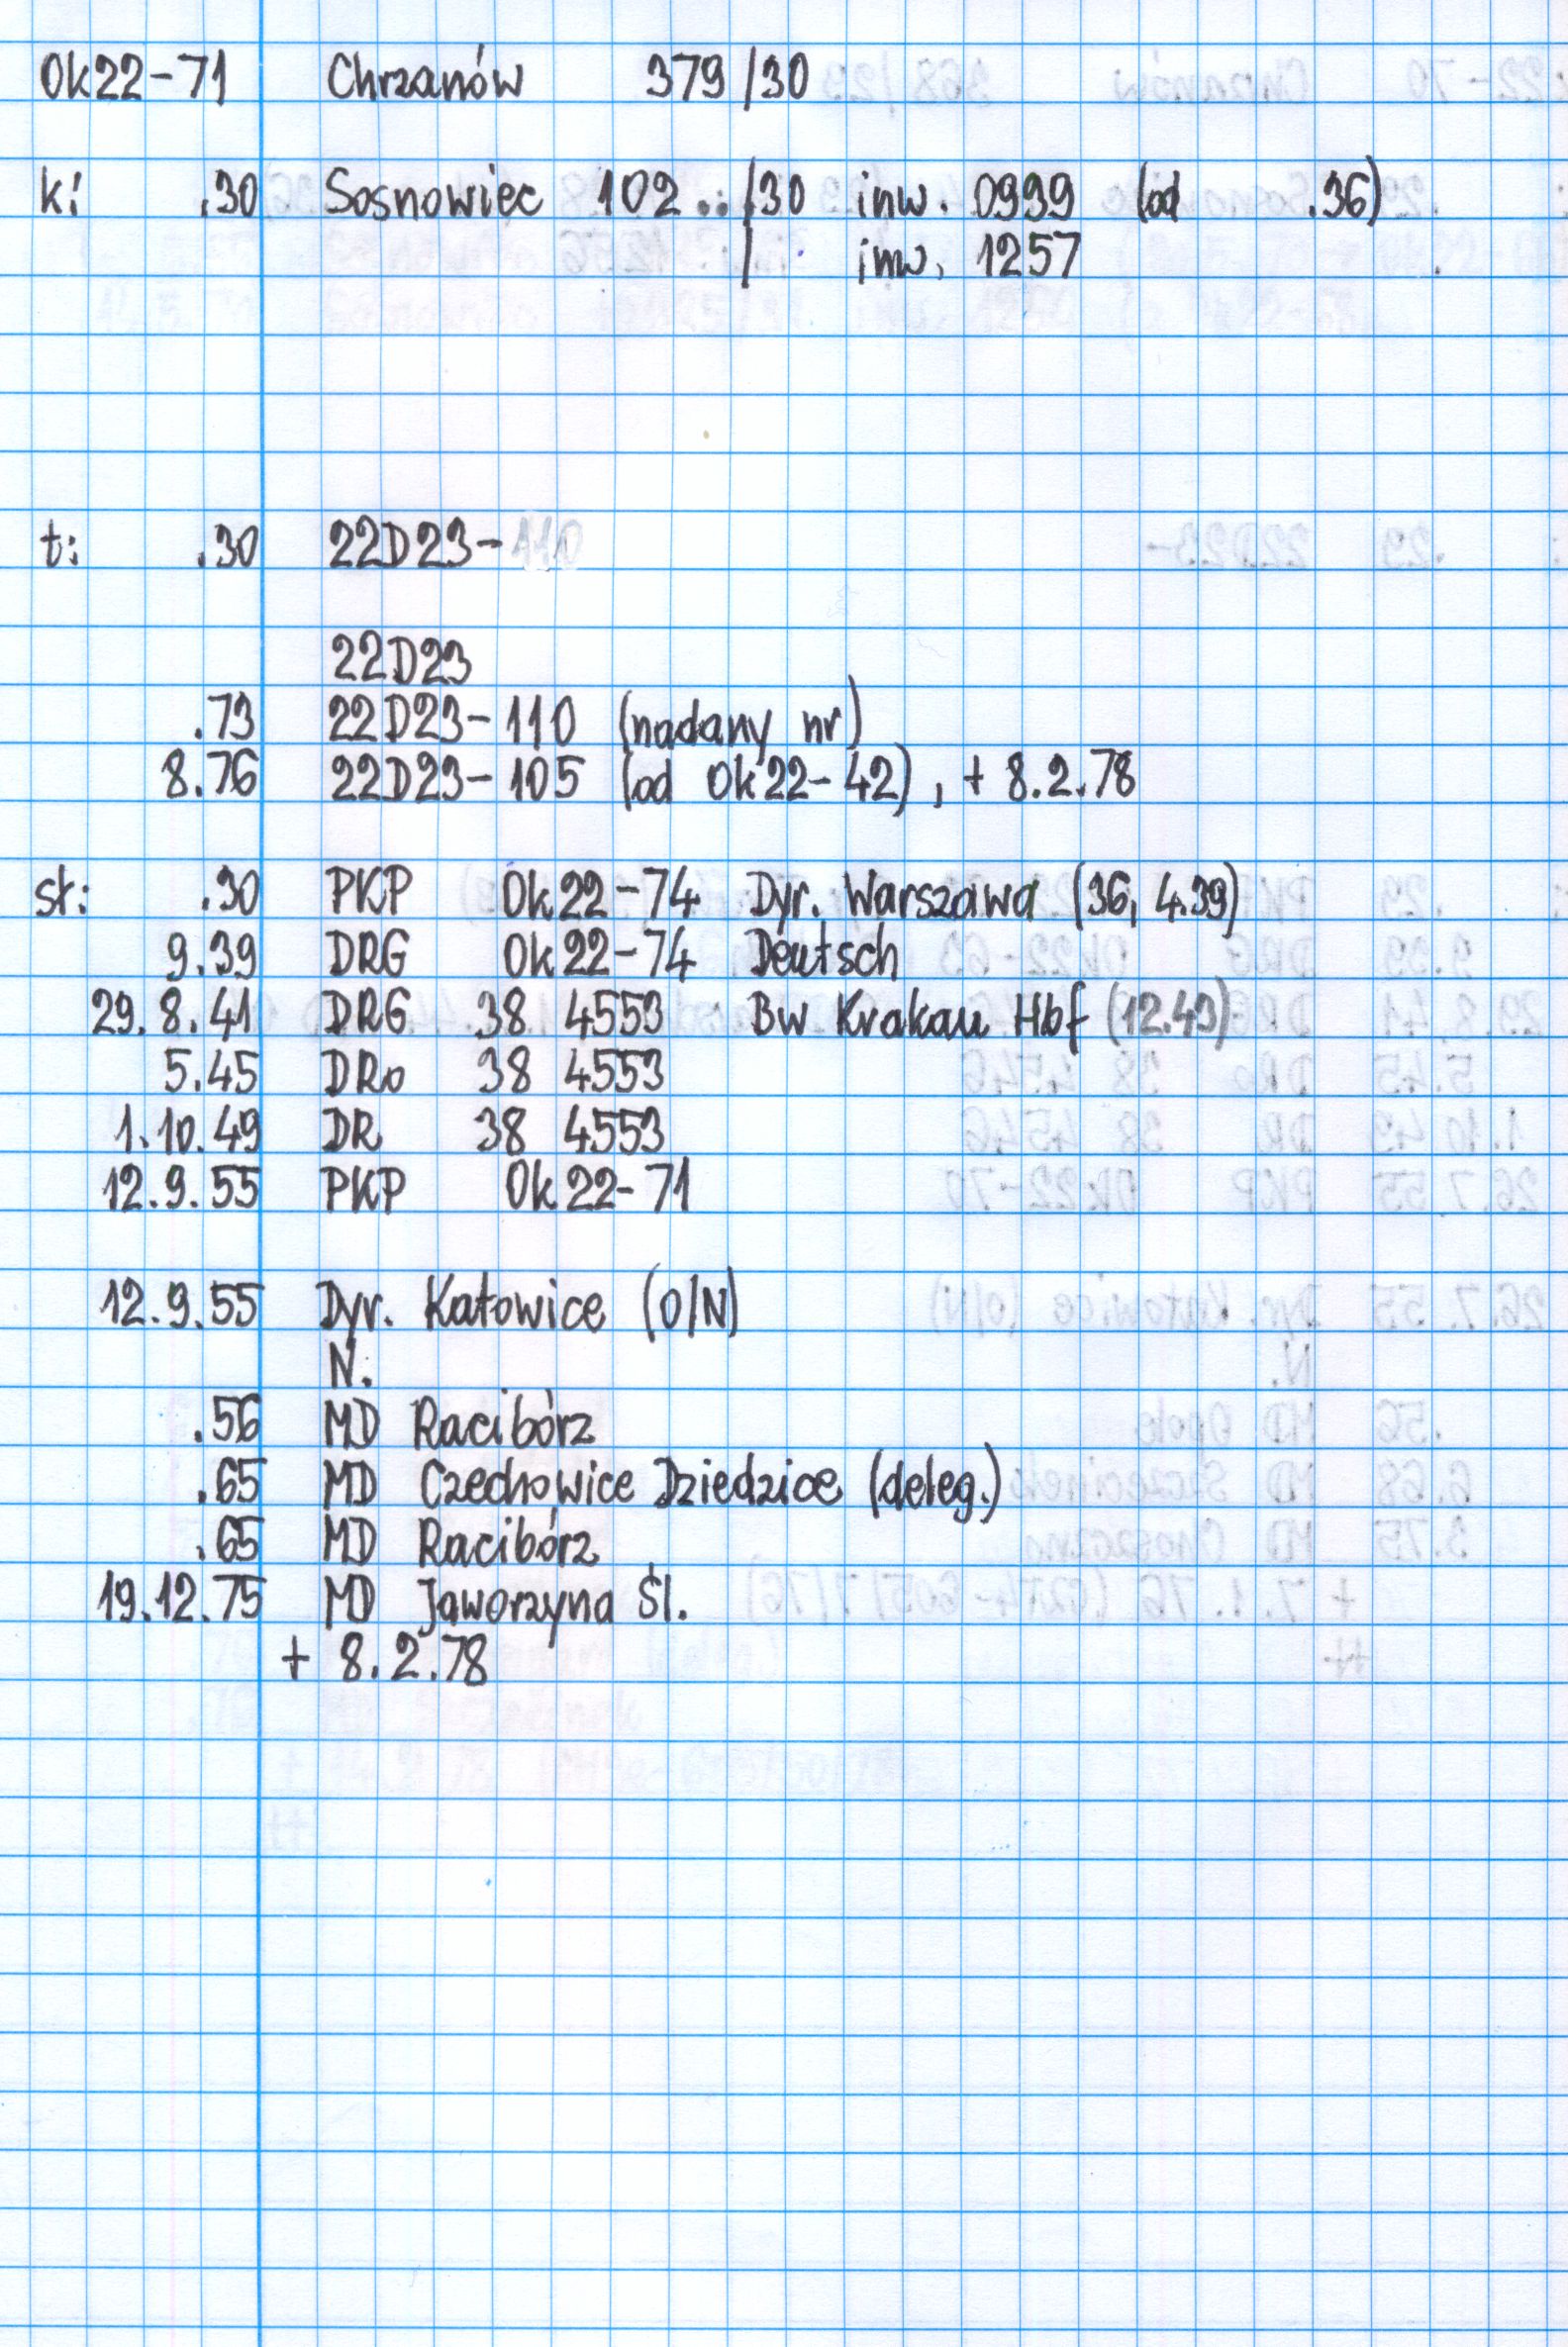 Ok22-71 Chrzanów 379/30
k: .30 Sosnowiec 102../30 inw. 0999 (od .36)
/ inw. 1257
t: .30 22D23-110
22D23
.73 22D23-110 (nadany nr)
8.76 22D23-105 (od Ok22-42), + 8.2.78
st: .30 PKP Ok22-74 Dyr. Warszawa (36, 4.39)
9.39 DRG Ok22-74 Deutsch
29.8.41 DRG 38 4553 Bw Krakau Hbf (12.43)
5.45 DRo 38 4553
1.10.49 DR 38 4553
12.9.55 PKP Ok22-71
12.9.55 Dyr. Katowice (O/N)
N.
.56 MD Racibórz
.65 MD Czechowice Dziedzice (deleg.)
.65 MD Racibórz
19.12.75 MD Jaworzyna Śl.
+ 8.2.78